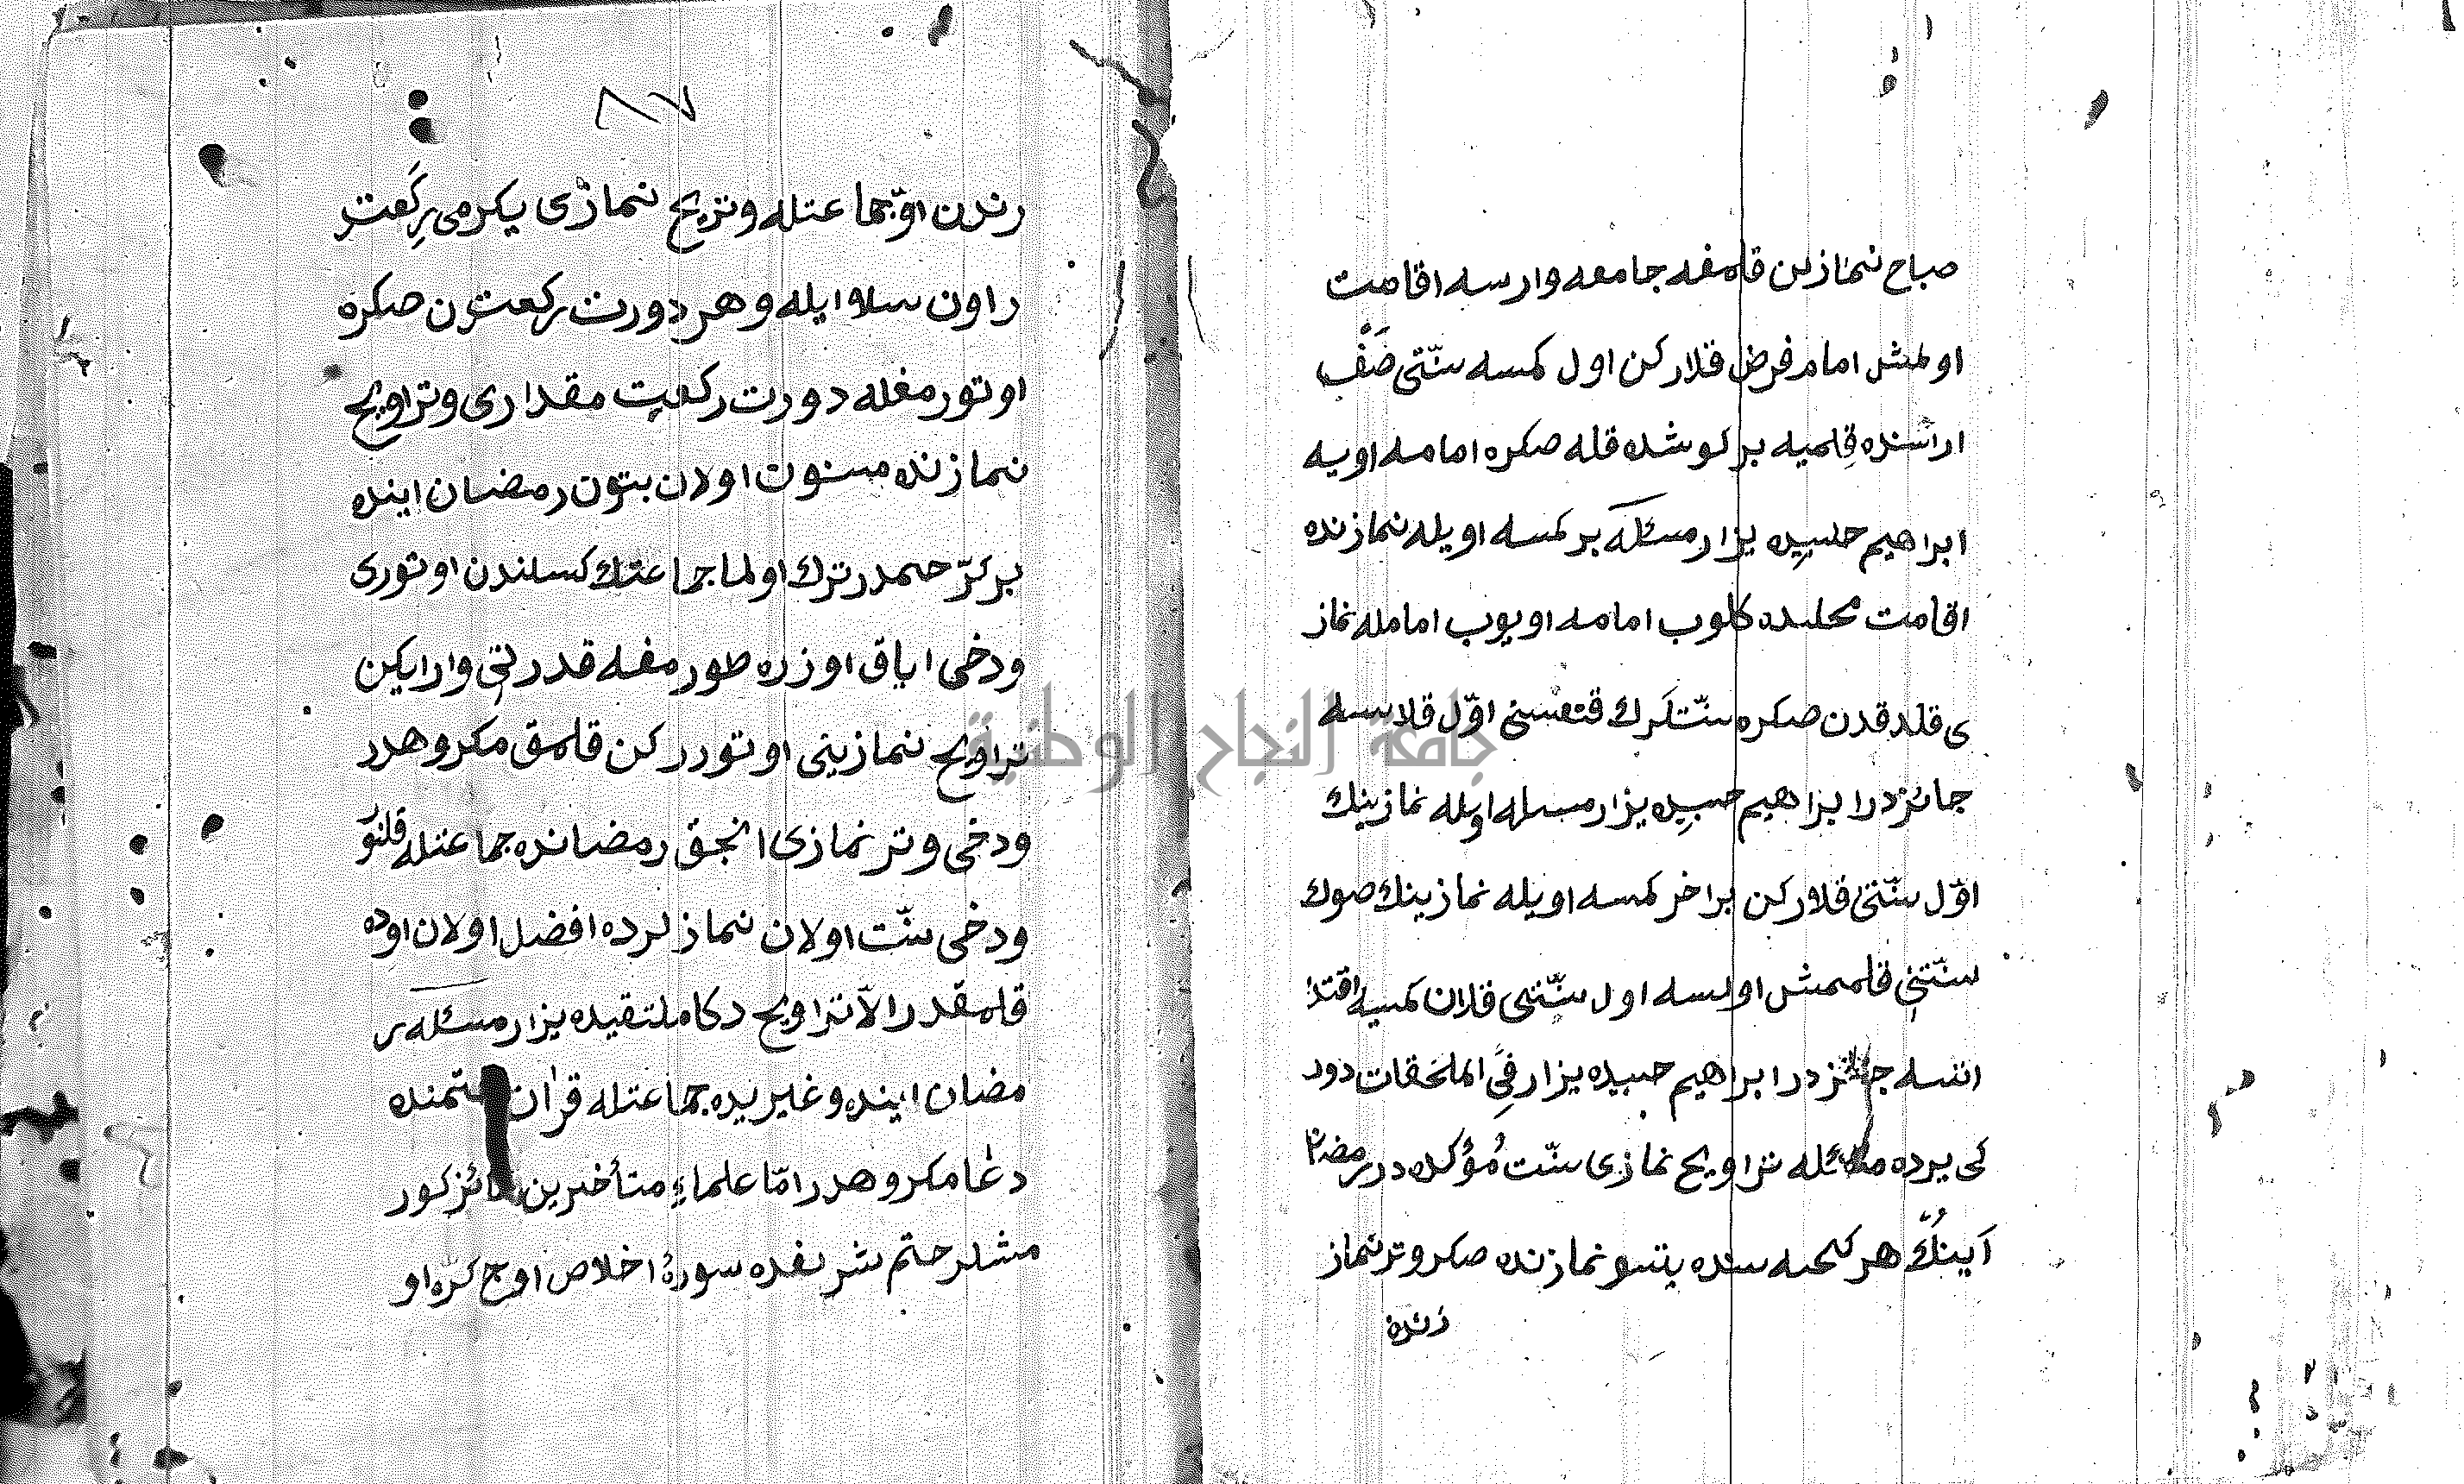 صباح نمازین قلمغه جامعه وارسه اقامت
اولمش امام فرض قلارکن اول کمسه سنّتی صَفْ
اراسنده قِلمیه بر کوشده قله صکره امامه اویه
ابراهیم حلبیده یزار مسئله بر کمسه اویله نمازنده
اقامت محلنده کلوب امامه اویوب اماملە نماز
ی قلدقدن صکره سنّتلَرك قنغسنی اوّل قلاسه
جائزدر ابراهیم حلبیده یزار مسئله اویله نمازینك
اوّل سنّتی قلارکن بر اخر کمسه اویله نمازینك صوك
سنّتنی قلممش اولسه اول سنّتی قلان کمسیه اقتدا
اتسه جائزدر ابراهیم حلبیده یزار فی الملحقات دود
کی یرده مسئله تراویح نمازی سنّت مُؤکده در رمضان
اَینُكْ هر کجه سنده یتسو نمازنده صکره وتر نماز
زنده
٨٧
رندن اوّ جماعتله وتریح نمازی یکرمی رِکَعت
راون سلا ایله وهر دورت رکعتدن صکره
اوتورمغله دورت رکعت مقداری وتراویح
نمازنده مسنون اولان بتون رمضان اینده
بر کرّ حتمدر ترك اولما جماعتك کسلندن اوتوری
ودخی ایاق اوزره طورمغه قدرتی وارایکن
تراویح نمازینی اوتوررکن قلمق مکروهدر
ودخی وتر نمازی انجق رمضانده جماعتله قلنو
ودخی سنّت اولان نمازلرده افضل اولان اوده
قلمقدر الّا تراویح دکل ملتقیده یزار مسئله ر
مضان اینده وغیریده جماعتله قران ختمنده
دعا مکروهدر امّا علماءِ متأخرین جائز کور
مشلر ختم شریفده سورهٔ اخلاص اوچ کرّه او
جامعة النجاح الوطنية